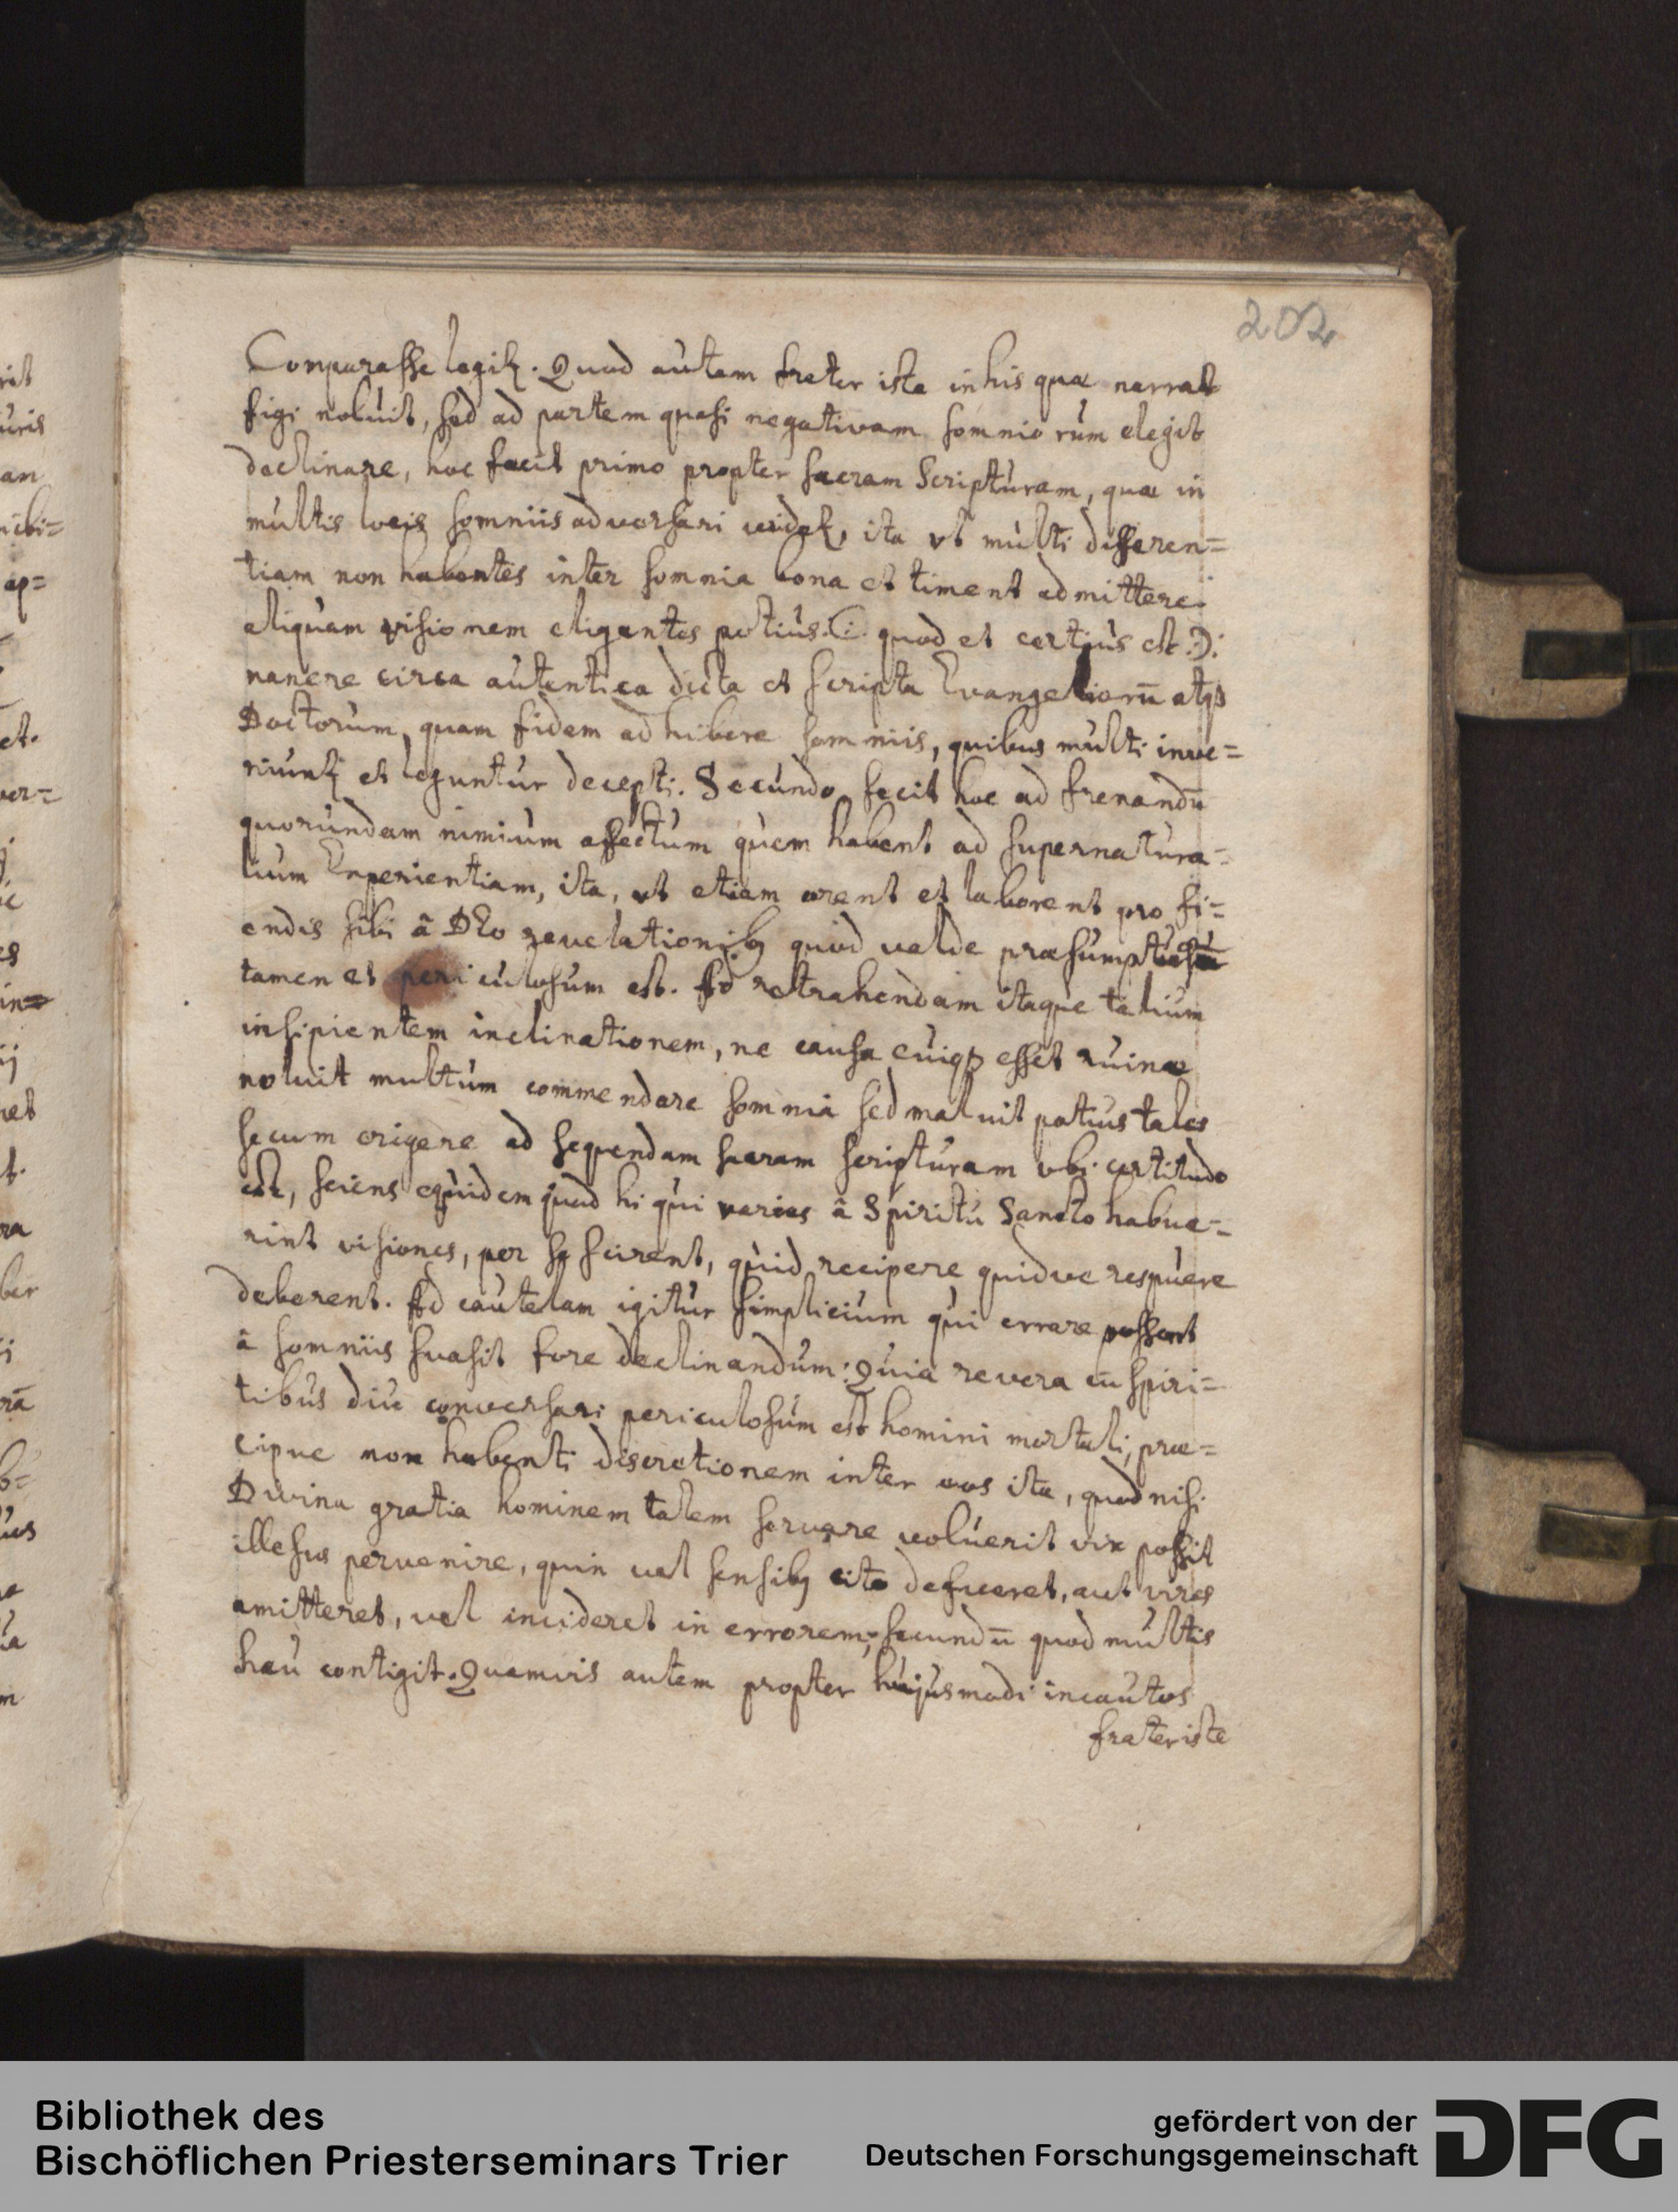 202
Comparasse legitꝛ. Quod autem frater iste in his quæ narrat
figi noluit, sed ad partem quasi negativam somniorum elegit
declinare, hoc facit primo propter sacram Scripturam, quæ in
multis locis somniis adversari videtꝛ, ita vt multi differen=
tiam non habentes inter somnia bona et timent admittere
aliquam visionem eligentes potius .(:. quod et certius est .):
manere circa autentica dicta et scripta Evangeliorũ atqꝫ
Doctorum, quam fidem adhibere somniis, quibus multi inve=
niuntꝛ et leguntur decepti. Secundo facit hoc ad frenandũ
quorundam nimium affectum quem habent ad supernatura=
lium Experientiam, ita, vt etiam orent et laborent pro fi=
endis sibi â DEo revelationibꝫ quod valde præsumptuosũ
tamen et periculosum est. Ad retrahendam itaque talium
insipientem inclinationem, ne causa cuiqꝫ esset ruinæ
noluit multum commendare somnia sed maluit potius tales
secum erigere ad sequendam sacram scripturam vbi certitudo
est, sciens equidem quod hi qui varias â Spiritu Sancto habue=
rint visiones, per se scirent, quid recipere quidve respuere
deberent. Ad cautelam igitur simplicium qui errare possent
â somniis suasit fore declinandum: Quia revera cũ spiri=
tibus diu conversari periculosum est homini mortali, præ=
cipue non habenti discretionem inter eos ita, quod nisi
Divina gratia hominem talem servare voluerit vix possit
illesus pervenire, quin vel sensibꝫ cito deficeret, aut vires
amitteret, vel incideret in errorem, secundũ quod multis
heu contigit. Quamvis autem propter huijusmodi incautos
frater iste
rit
uris
an
ep=
et.
ver=
es
in=
ij
ret
t.
ra
ber
b=
m
Bibliothek des
Bischöflichen Priesterseminars Trier
gefördert von der
Deutschen Forschungsgemeinschaft
DFG